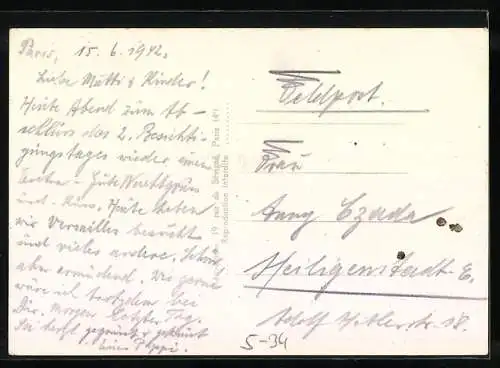 Paris, 15.6.1942.
Liebe Mutti & Kinder!
Heute Abend zum Ab-
schluss des 2. Besichti-
gungstages wieder einen
Karten-Gute Nachtgruss
und -Kuss. Heute haben
wir Versailles besucht
und vieles andere. Schön,
aber ermüdend. Wie gerne
wäre ich trotzdem bei
Dir. Morgen letzter Tag.
Sei herzl. gegrüsst & geküsst
Euer Pappi.
19 rue de Paris 14e
Reproduction interdite
Feldpost.
Frau
Anny Czada
Heiligenstadt-E.
Adolf Hitlerstr. 38.
5-34